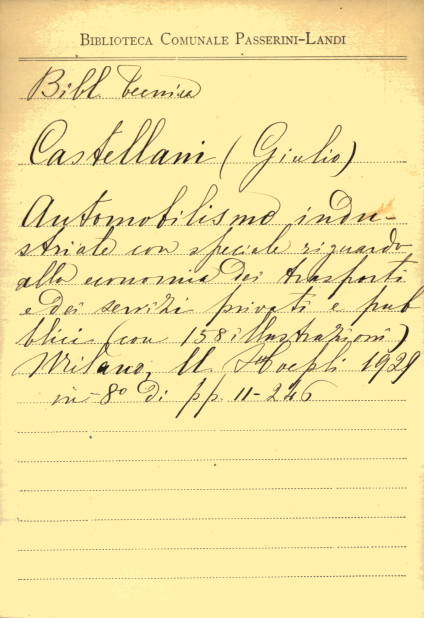 BIBLIOTECA COMUNALE PASSERINI-LANDI
Bibl. tecnica
Castellani (Giulio)
Automobilismo indu-
striale con speciale riguardo
alla economia dei trasporti
e dei servizi privati e pub
blici (con 158 illustrazioni)
Milano, U. Hoepli 1929
in-8º di pp. 11-246